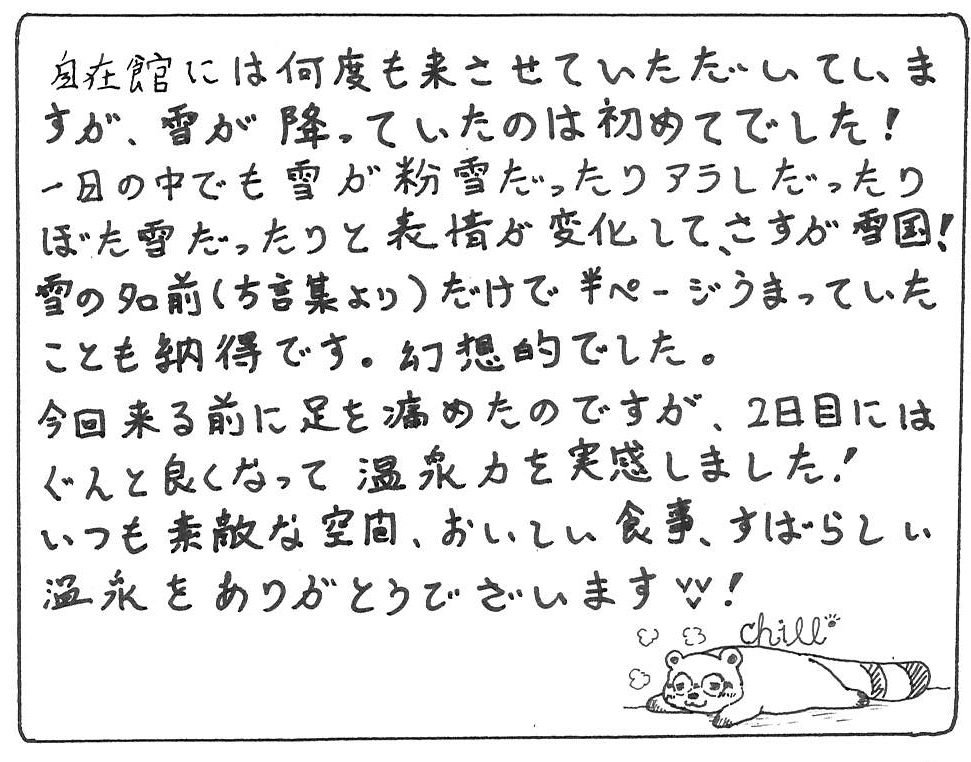 自在館には何度も来させていただいていま
すが、雪が降っていたのは初めてでした！
一日の中でも雪が粉雪だったりアラレだったり
ぼた雪だったりと表情が変化して、さすが雪国！
雪の名前(方言集より)だけで半ページうまっていた
ことも納得です。幻想的でした。
今回来る前に足を痛めたのですが、2日目には
ぐんと良くなって温泉力を実感しました！
いつも素敵な空間、おいしい食事、すばらしい
温泉をありがとうございます！
chill